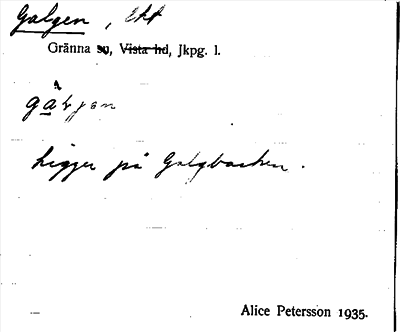 Galgen, Ett
Gränna so, Vista hd, Jkpg. l.
gàljen
Ligger på Galgbacken.
Alice Petersson 1935.